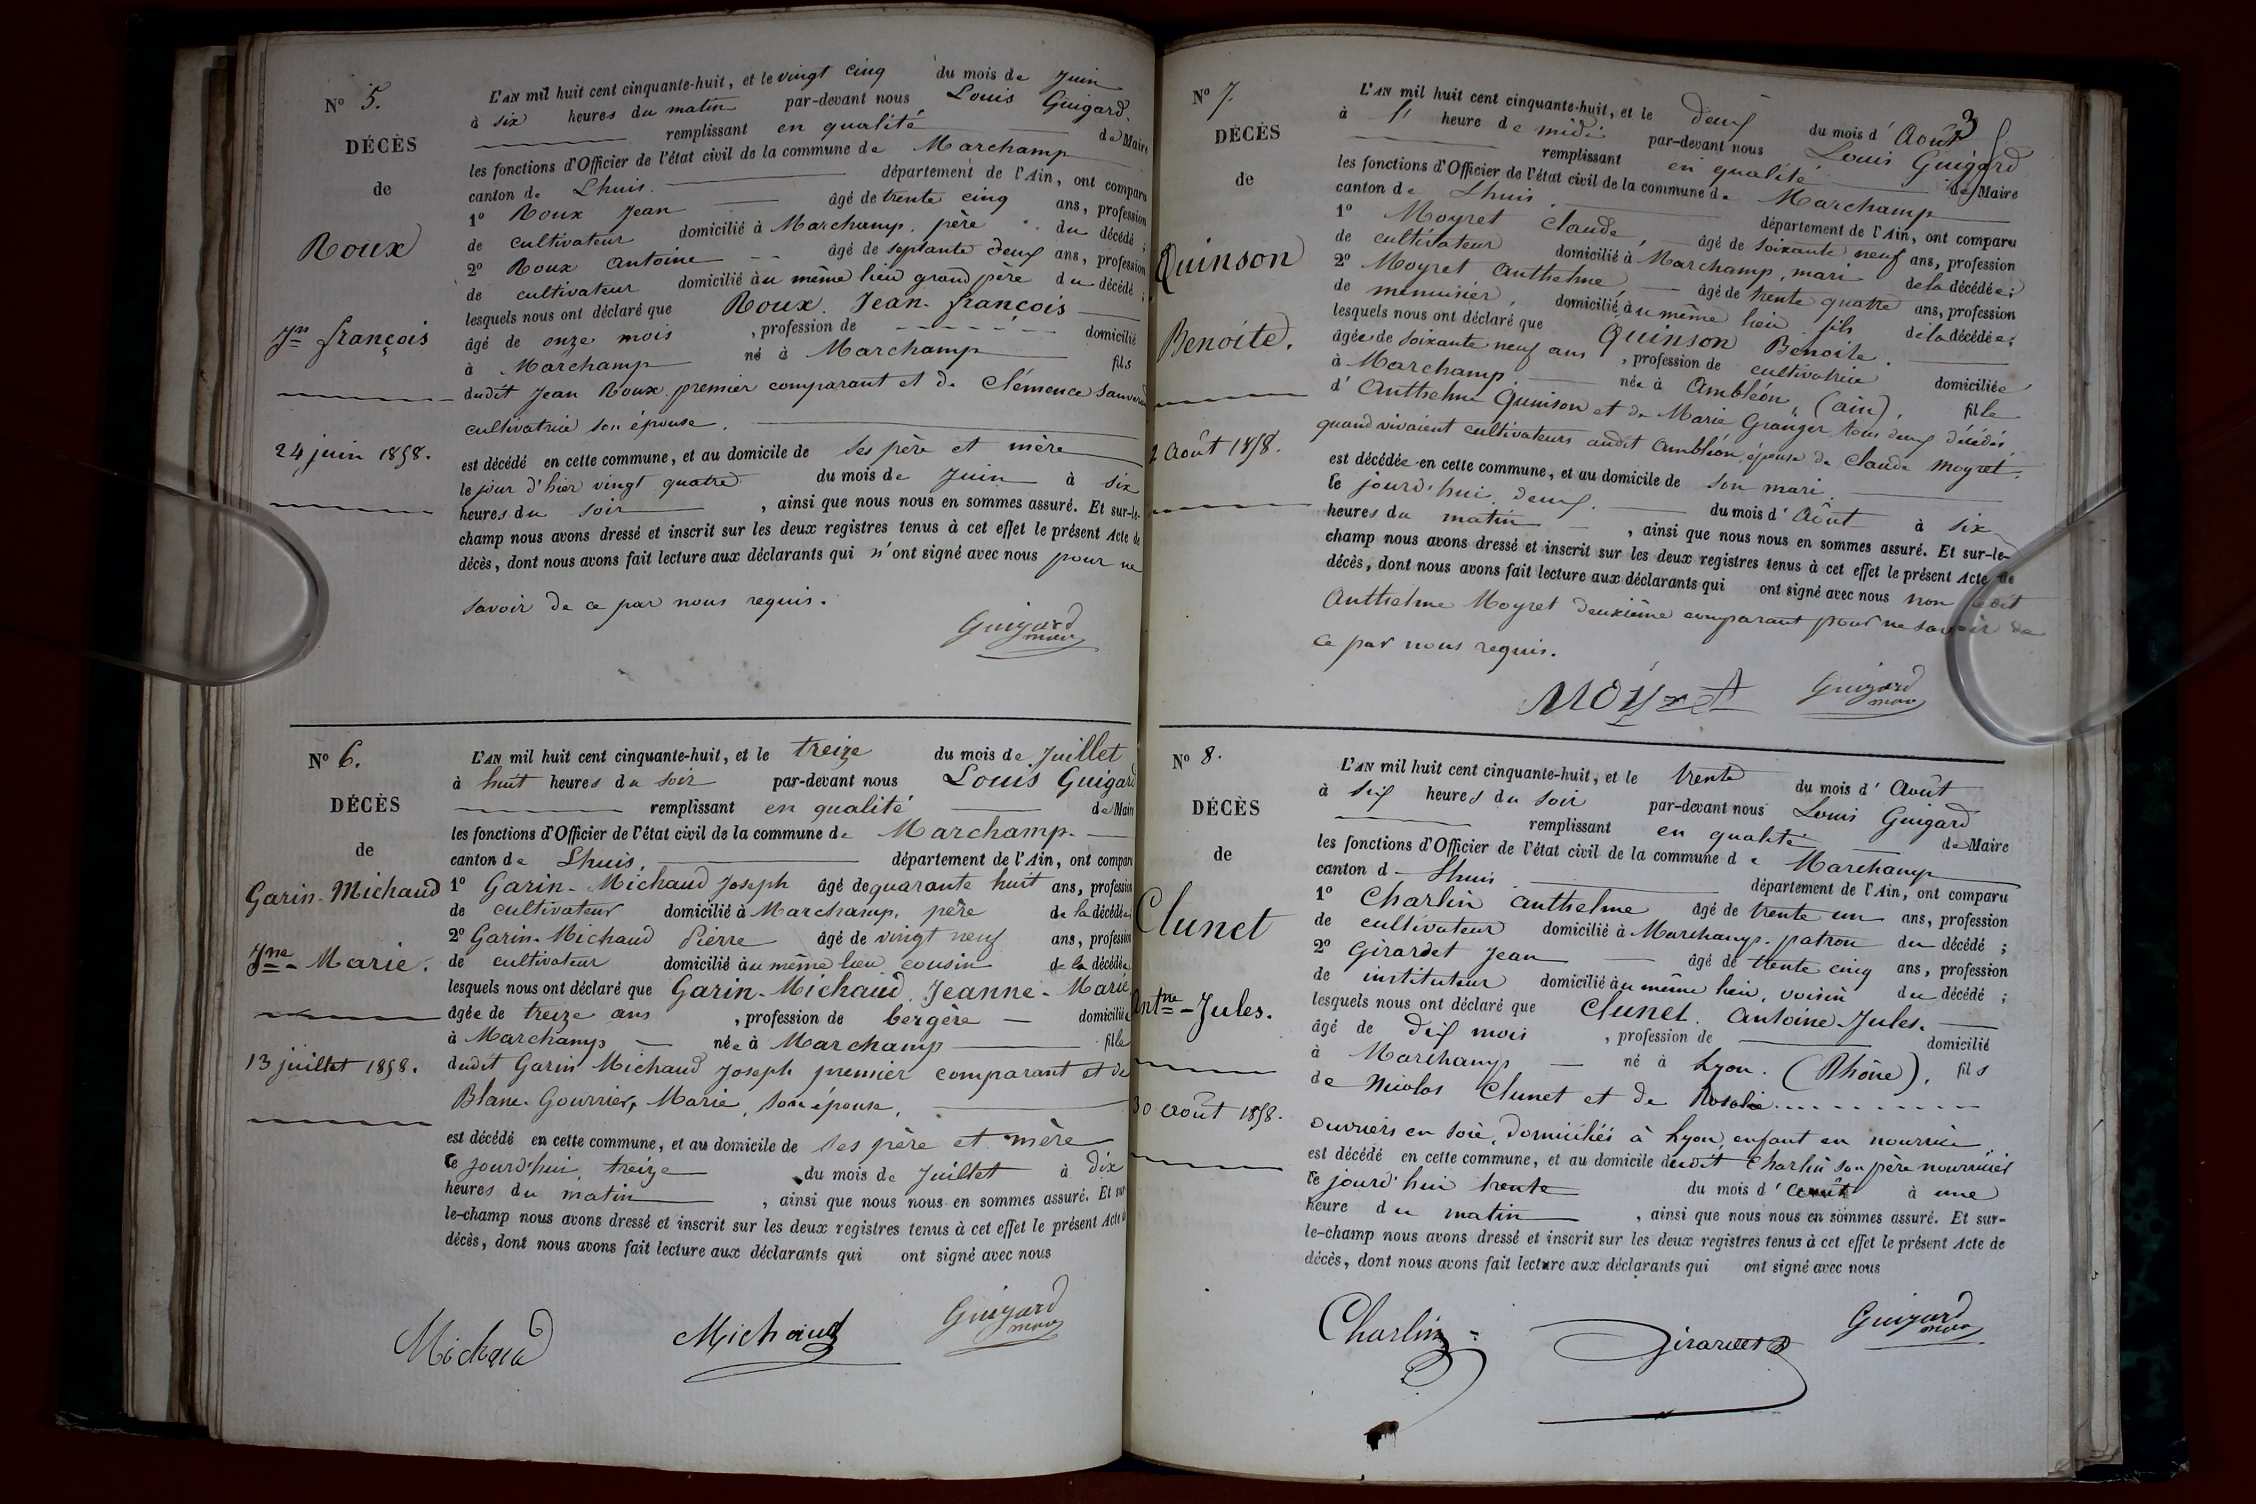 N° 5.
DÉCÈS
de
Roux
Jn françois
24 juin 1858.
L'AN mil huit cent cinquante-huit, et le vingt cinq du mois de Juin
à six heures du matin par-devant nous Louis Guigard.
remplissant en qualité de Maire
les fonctions d'Officier de l'état civil de la commune de Marchamp
canton de Lhuis. département de l'Ain, ont comparu
1° Roux Jean âgé de trente cinq ans, profession
de cultivateur domicilié à Marchamp. père du décédé ;
2° Roux Antoine âgé de septante deux ans, profession
de cultivateur domicilié au même lieu grand père du décédé ;
lesquels nous ont déclaré que Roux. Jean-françois
âgé de onze mois , profession de domicilié
à Marchamp né à Marchamp fils
dudit Jean Roux premier comparant et de Clémence
cultivatrice son épouse.
est décédé en cette commune, et au domicile de ses père et mère
le jour d'hier vingt quatre du mois de Juin à six
heures du soir , ainsi que nous nous en sommes assuré. Et sur-le-
champ nous avons dressé et inscrit sur les deux registres tenus à cet effet le présent Acte de
décès, dont nous avons fait lecture aux déclarants qui n'ont signé avec nous pour ne
savoir de ce par nous requis.
Guigard
maire
N° 6.
DÉCÈS
de
Garin-Michaud
Jne-Marie.
13 juillet 1858.
L'AN mil huit cent cinquante-huit, et le treize du mois de Juillet
à huit heures du soir par-devant nous Louis Guigard
remplissant en qualité de Maire
les fonctions d'Officier de l'état civil de la commune de Marchamp.
canton de Lhuis. département de l'Ain, ont comparu
1° Garin-Michaud Joseph âgé de quarante huit ans, profession
de cultivateur domicilié à Marchamp, père de la décédée
2° Garin-Michaud Pierre âgé de vingt neuf ans, profession
de cultivateur domicilié au même lieu cousin de la décédée
lesquels nous ont déclaré que Garin-Michaud Jeanne-Marie
âgée de treize ans , profession de bergère domiciliée
à Marchamp née à Marchamp fille
dudit Garin Michaud Joseph premier comparant et de
Blanc-Gourrier, Marie, son épouse.
est décédé en cette commune, et au domicile de ses père et mère
Ce jourd'hui treize du mois de Juillet à dix
heures du matin , ainsi que nous nous en sommes assuré. Et sur
le-champ nous avons dressé et inscrit sur les deux registres tenus à cet effet le présent Acte de
décès, dont nous avons fait lecture aux déclarants qui ont signé avec nous
Michaud Michaud Guigard
maire
3
N° 7.
DÉCÈS
de
Quinson
Benoite.
2 Août 1858.
L'AN mil huit cent cinquante-huit, et le deux du mois d'Août
à 1 heure de midi par-devant nous Louis Guigard
remplissant en qualité de Maire
les fonctions d'Officier de l'état civil de la commune de Marchamp
canton de Lhuis département de l'Ain, ont comparu
1° Moyret Claude âgé de soixante neuf ans, profession
de cultivateur domicilié à Marchamp, mari de la décédée ;
2° Moyret Anthelme âgé de trente quatre ans, profession
de menuisier, domicilié au même lieu fils de la décédée ;
lesquels nous ont déclaré que Quinson Benoite.
âgée de soixante neuf ans , profession de cultivatrice domiciliée
à Marchamp. née à Ambléon, (ain), fille
d'Anthelme Quinson et de Marie Granger tous deux décédés,
quand vivaient cultivateurs audit Ambléon, épouse de Claude Moyret.
est décédée en cette commune, et au domicile de son mari.
Ce jourd'hui deux. du mois d'Août à six
heures du matin , ainsi que nous nous en sommes assuré. Et sur-le-
champ nous avons dressé et inscrit sur les deux registres tenus à cet effet le présent Acte de
décès, dont nous avons fait lecture aux déclarants qui ont signé avec nous non
Anthelme Moyret deuxième comparant pour ne savoir de
ce par nous requis.
Moyret Guigard
maire
N° 8.
DÉCÈS
de
Clunet
Antne-Jules.
30 août 1858.
L'AN mil huit cent cinquante-huit, et le trente du mois d'Août
à six heures du soir par-devant nous Louis Guigard
remplissant en qualité de Maire
les fonctions d'Officier de l'état civil de la commune de Marchamp
canton d Lhuis département de l'Ain, ont comparu
1° Charlin Anthelme âgé de trente un ans, profession
de cultivateur domicilié à Marchamp. patron du décédé ;
2° Girardet Jean âgé de trente cinq ans, profession
de instituteur domicilié au même lieu, voisin du décédé ;
lesquels nous ont déclaré que Clunet. Antoine-Jules.
âgé de dix mois , profession de domicilié
à Marchamp né à Lyon. (Rhône), fils
de Nicolas Clunet et de Rosalie
ouvriers en soie, domiciliés à Lyon, enfant en nourrice
est décédé en cette commune, et au domicile dudit Charlin son père nourricier
Ce jourd'hui trente du mois d'août à une
heure du matin , ainsi que nous nous en sommes assuré. Et sur-
le-champ nous avons dressé et inscrit sur les deux registres tenus à cet effet le présent Acte de
décès, dont nous avons fait lecture aux déclarants qui ont signé avec nous
Charlin Girardet Guigard
maire